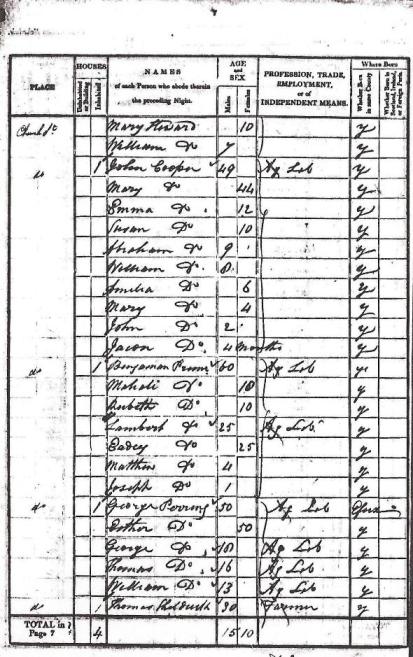 PLACE
HOUSES
Uninhabited or Building
Inhabited
NAMES
of each Person who abode therein
the preceding Night.
AGE
and
SEX
Males
Females
PROFESSION, TRADE,
EMPLOYMENT,
or of
INDEPENDENT MEANS.
Where Born
Whether Born in same County
Whether Born in Scotland, Ireland, or Foreign Parts.
Church St Mary 10 y
William Do 7 y
do 1 John Cooper 49 Ag Lab y
Mary Do 44 y
Emma Do 12 y
Susan Do 10 y
Abraham Do 9 y
William Do 8 y
Amelia Do 6 y
Mary Do 4 y
John Do 2 y
Jason Do 4 Months y
do 1 Benjaman 60 Ag Lab y
10 y
Do 10 y
Lambert Do 25 Ag Lab y
Do 25 y
Matthew Do 4 y
Joseph Do 1 y
do 1 George Perring 50 Ag Lab
Esther Do 50 y
George Do Ag Lab y
Thomas Do 16 Ag Lab y
William Do 13 Ag Lab y
do 1 Thomas 30 Farmer y
TOTAL in
Page 7 4 15 10